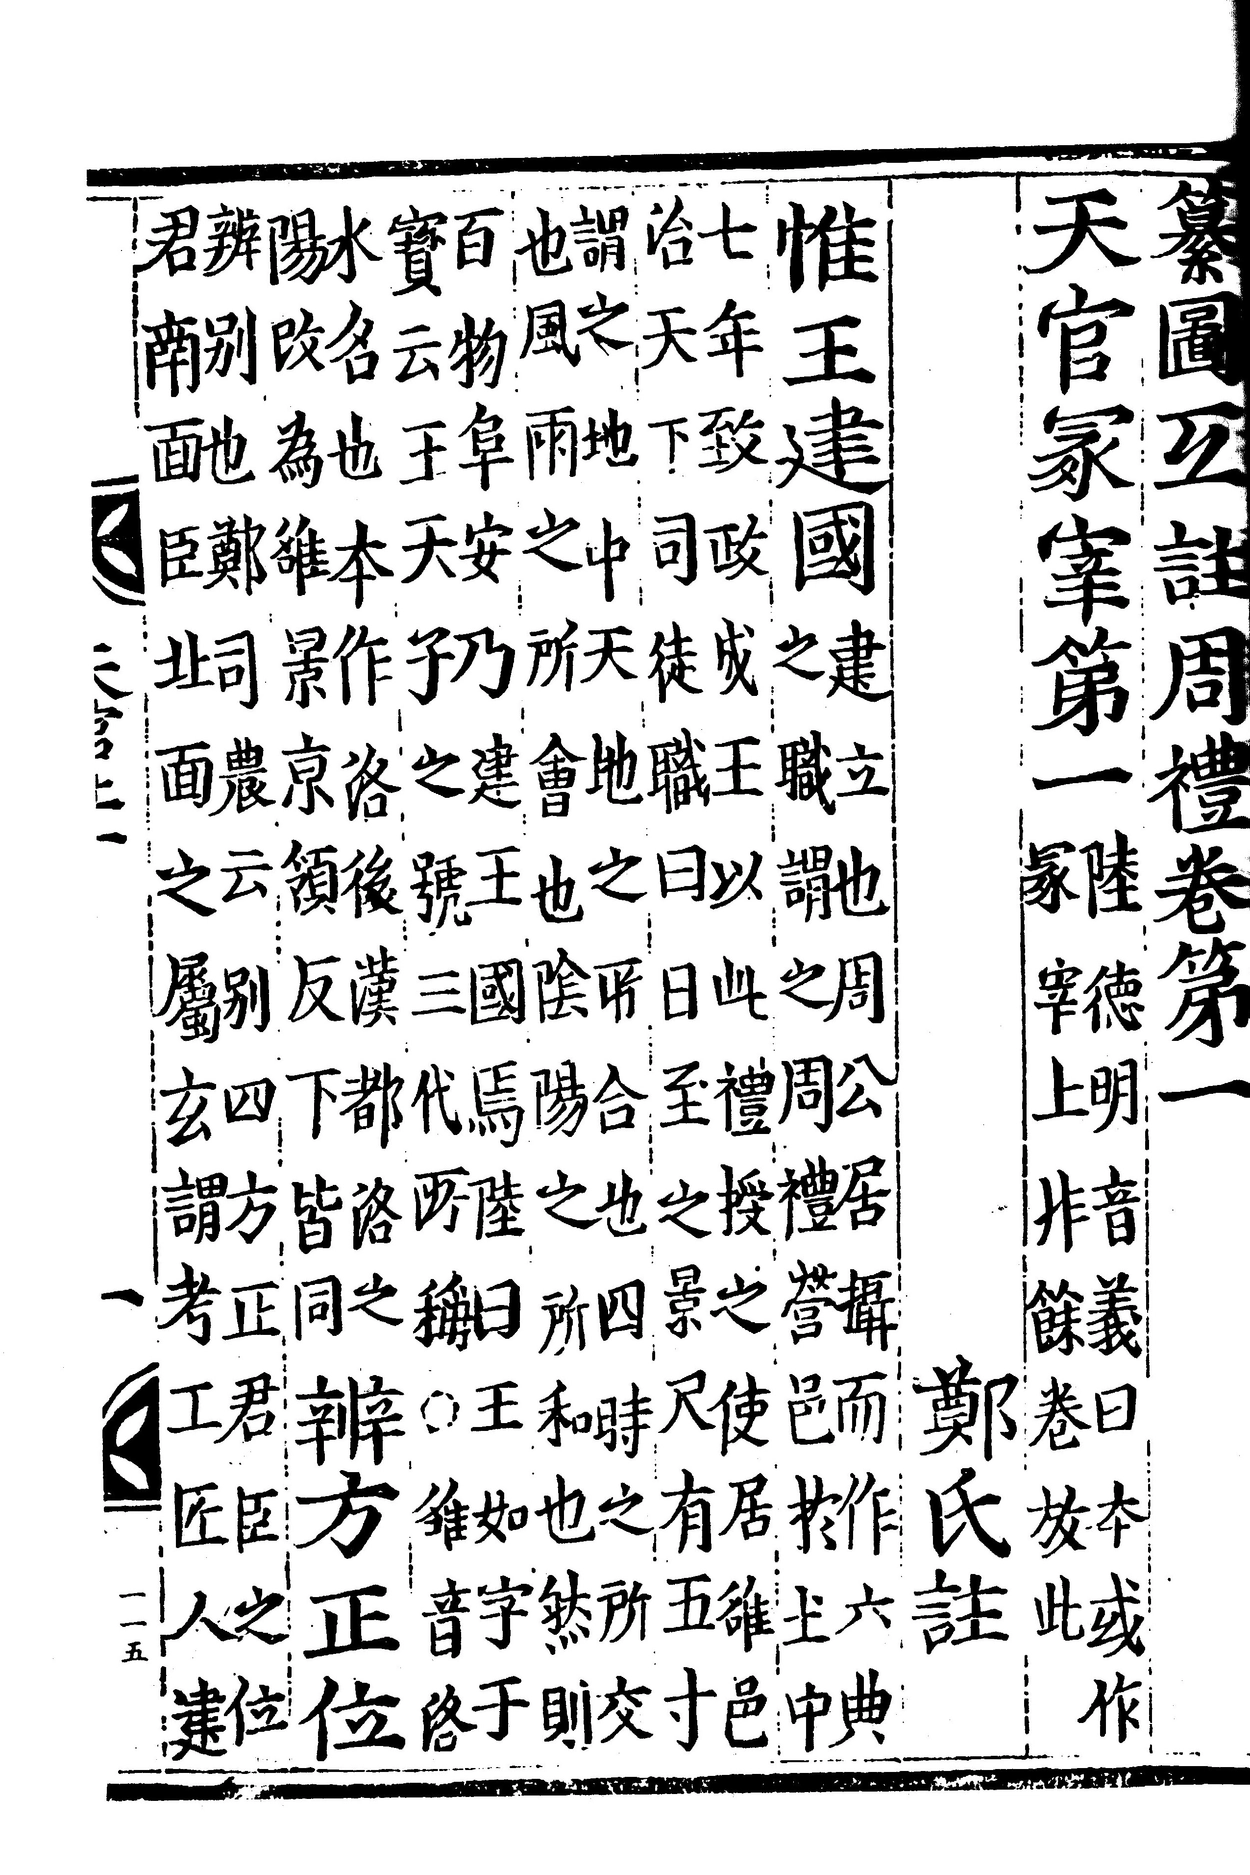 纂圖互註周禮卷第一
天官冢宰第一
陸德明音義曰本或作
冢宰上非餘卷放此
鄭氏註
惟王建國
建立也周公居攝而作六典
之職謂之周禮營邑於土中
七年致政成王以此禮授之使居雒邑
治天下司徒職曰日至之景尺有五寸
謂之地中天地之所合也四時之所交
也風雨之所會也陰陽之所和也然則
百物阜安乃建王國焉陸曰王如字于
寶云王天子之號三代所稱○雒音洛
水名也本作洛後漢都洛之
陽改為雒景京領反下皆同
辨方正位
辨別也鄭司農云别四方正君臣之位
君南面臣北面之屬玄謂考工匠人建
天官上一
一
一一五